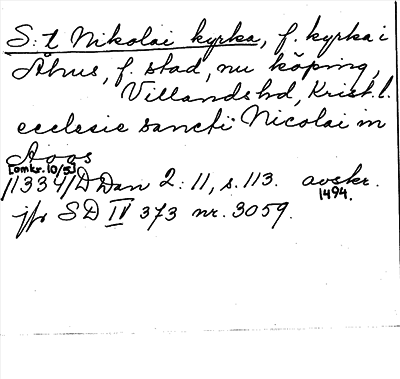 S:t Nikolai kyrka, f. kyrka i
Åhus, f. stad, nu köping,
Villands hd, Krist. l.
ecclesie sancti Nicolai in
Aoos
[omkr. 10/5]
/1334/ D Dan 2:11, s. 113. avskr.
1494.
jfr SD IV 373 nr. 3059.